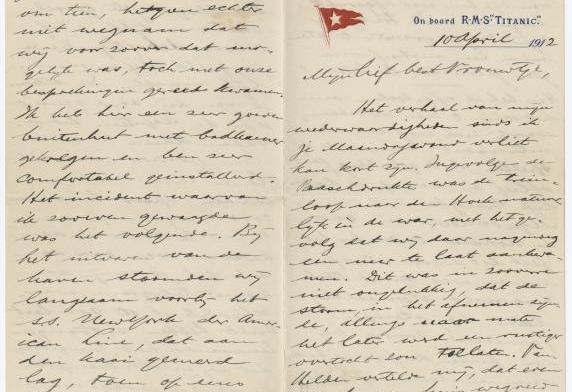 On board R·M·S "TITANIC".
10 April 1912
Mijn lief best Vrouwtje,
Het verhaal van mijn
wederwaardigheden sinds ik
je Maandagavond verliet
kan kort zijn. Ingevolge de
Paaschdrukte was de trein-
loop naar den Hoek natuur-
lijk in de war, met het ge-
volg dat wij daar nagenoeg
een uur te laat aankwa-
men. Dit was in zooverre
niet ongelukkig, dat de
storm, in het afnemen zijn-
de, allengs naar mate
het later werd een rustiger
overtocht zou toelaten. Van
Helden vertelde mij, dat even
om tien, hetgeen echter
niet wegnam dat
wij voor zoover dat mo-
gelijk was, toch met onze
besprekingen gereed kwamen.
Ik heb hier een zeer goede
buitenhut met badkamer
gekregen en ben zeer
comfortabel geinstalleerd.
Het incident waarvan
ik zooeven gewaagde
was het volgende. Bij
het uitvaren van de
haven stoomden wij
langzaam voorbij het
s.s. NewYork der Amer-
ican line, dat aan
den kaai gemeerd
lag, toen op eens